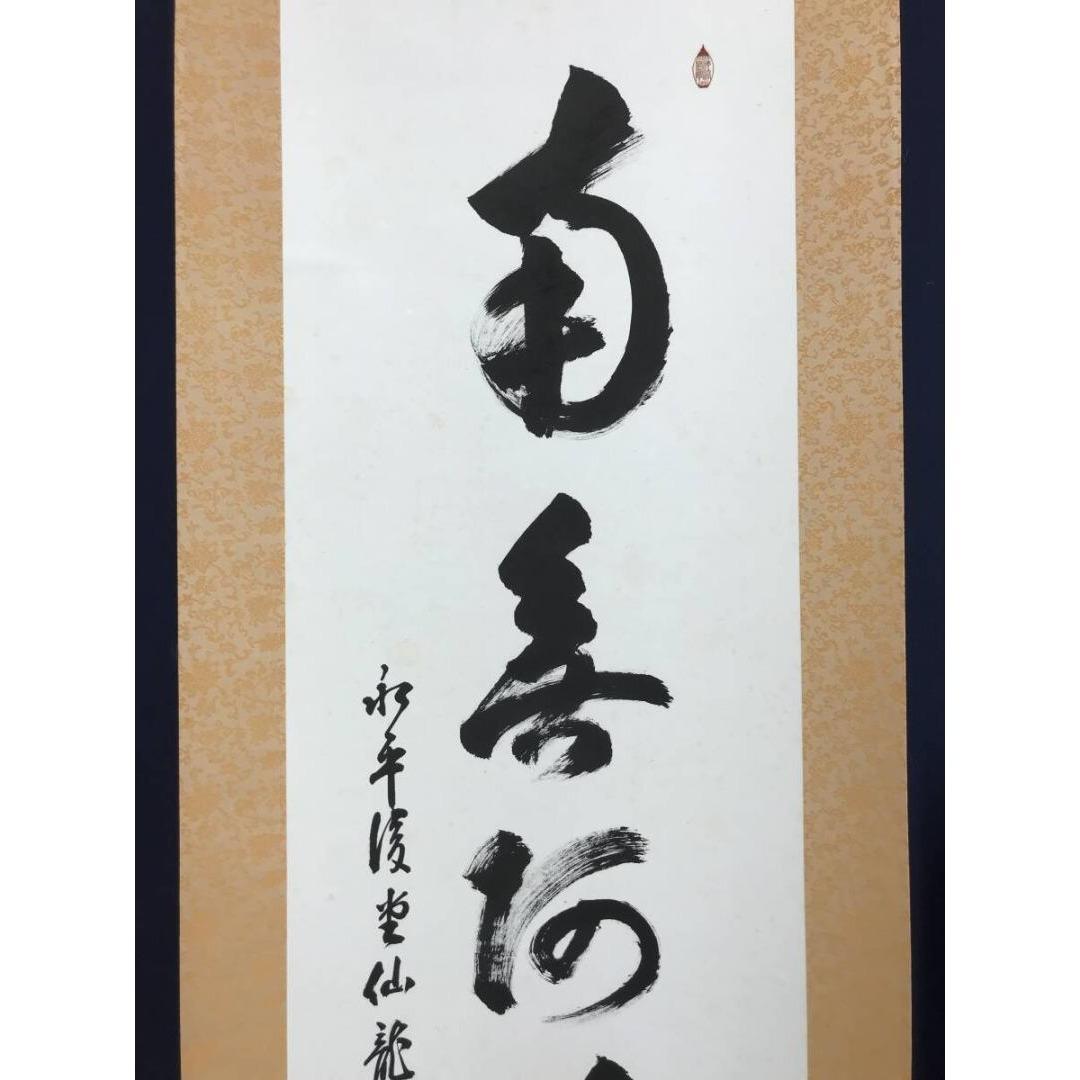 南無阿
永平後堂仙龍